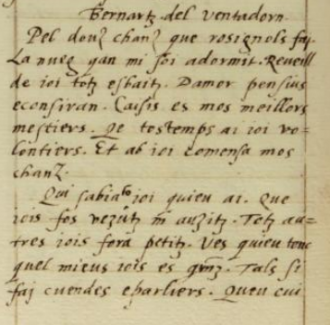 Bernartz del ventadorn.
Pel douz chanz que rosignols fai.
La nueg qan mi soi adormit. Reveill
de ioi totz esbaitz. Damor pensius
econsiran. Caisis es mos meillors
mestiers. Qe tostemps ai ioi vo-
lontiers. Et ab ioi comensa mos
chanz.
Qui sabia lo ioi quieu ai. Que
iois fos vezutz ni auzitz. Totz au-
tres iois fora petitz. Ves quieu tenc
quel mieus iois es granz. Tals si
fai cuendes eparliers. Quen cui